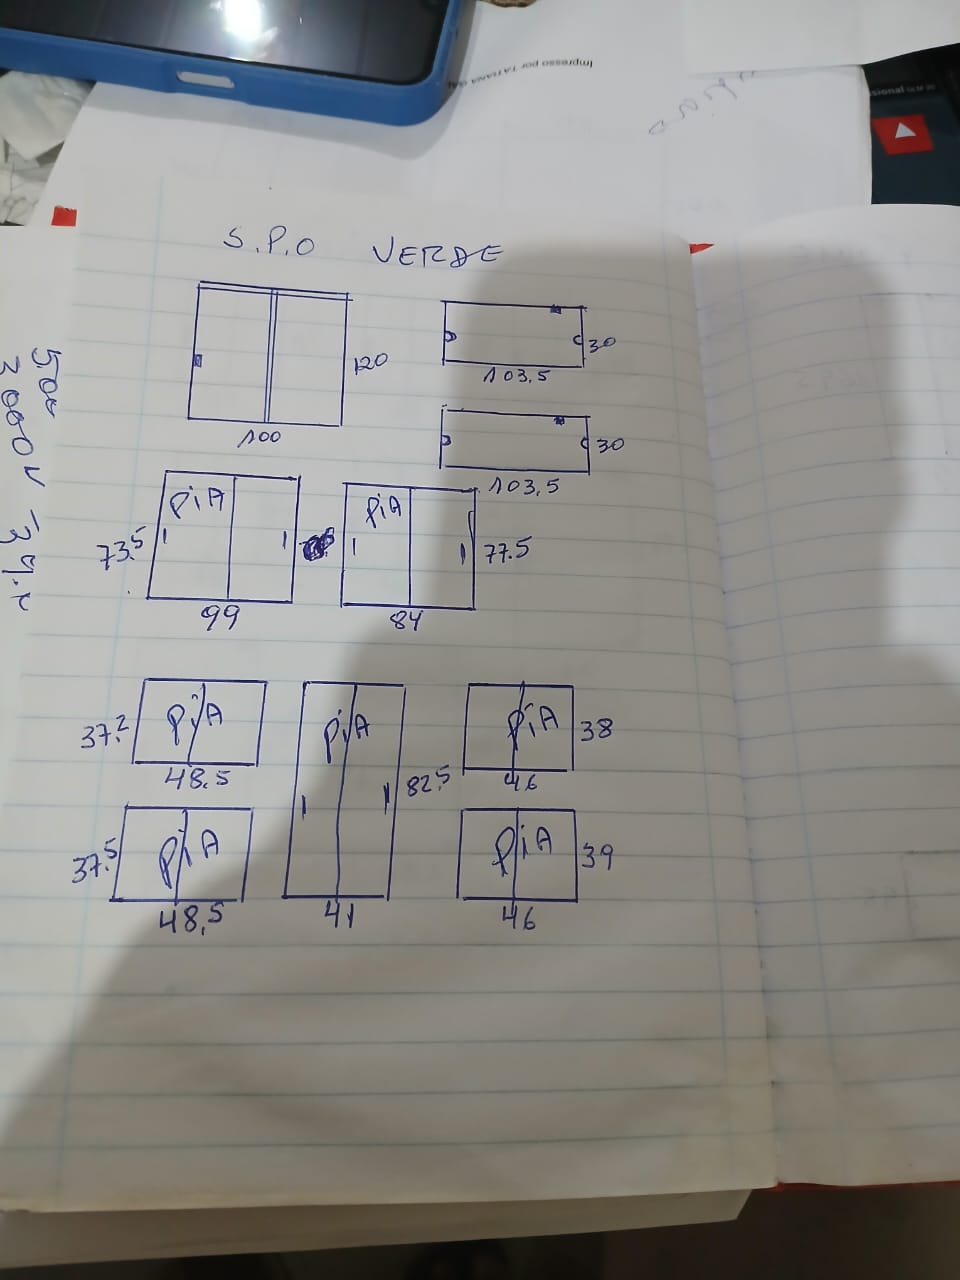 Impresso por TATIANA
sional
S.P.O VERDE
120
100
30
103,5
30
103,5
PiA
73.5
99
PiA
77.5
84
PiA
37.2
48.5
PiA
82.5
41
PiA
38
46
PiA
37.5
48,5
PiA
39
46
500
3000